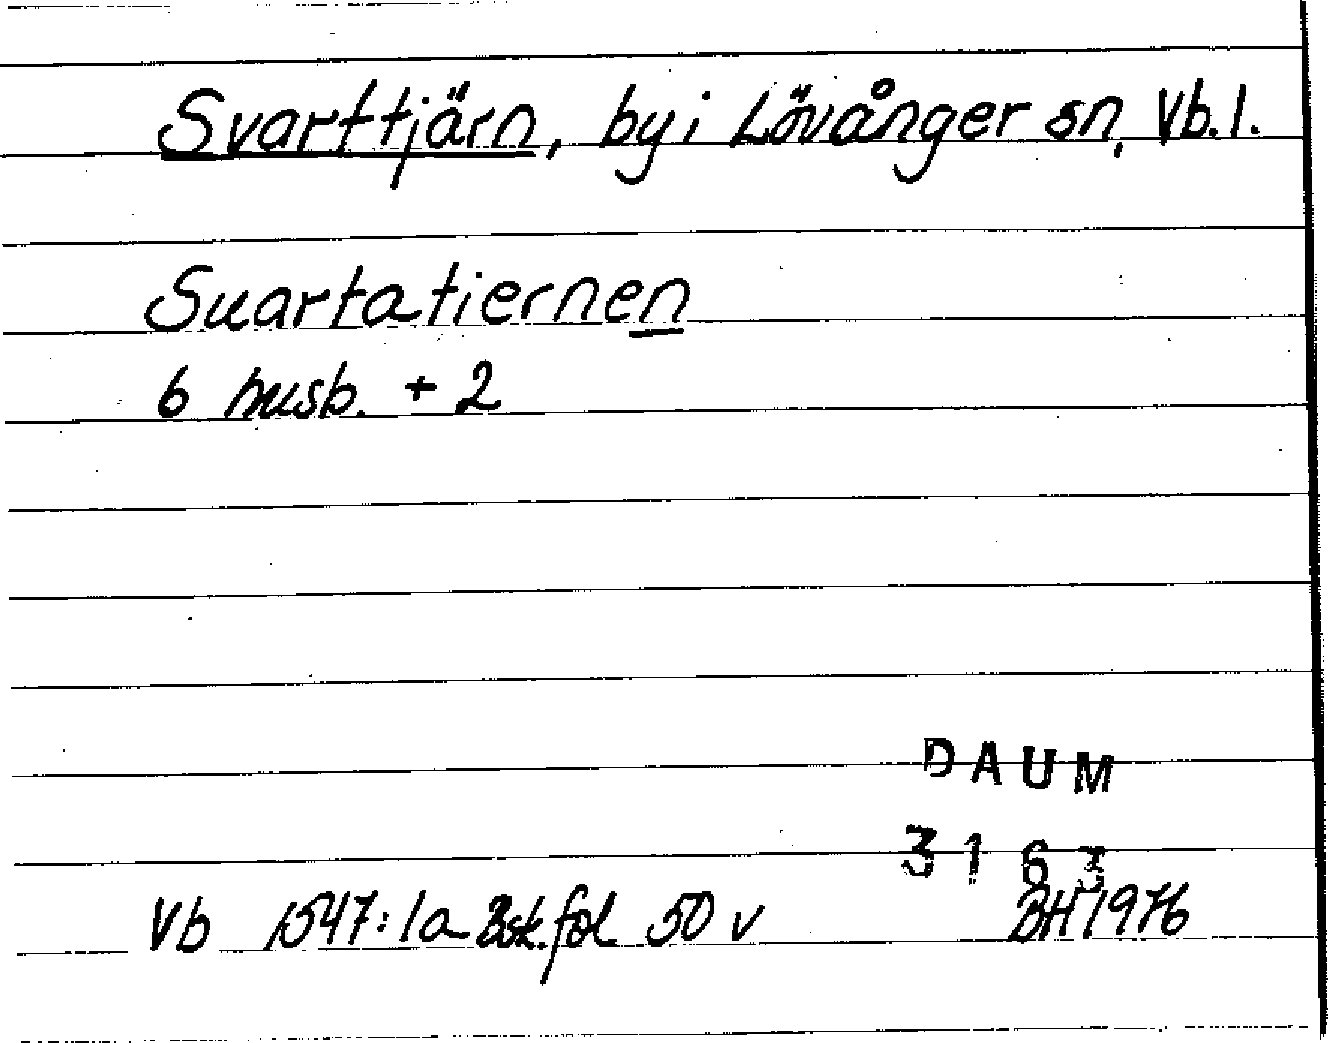 Svarttjärn, by i Lövånger sn, Vb. l.
Suartatiernen
6 husb. + 2
DAUM
3163
Vb 1547:1a Bsk. fol 50 v BH 1976